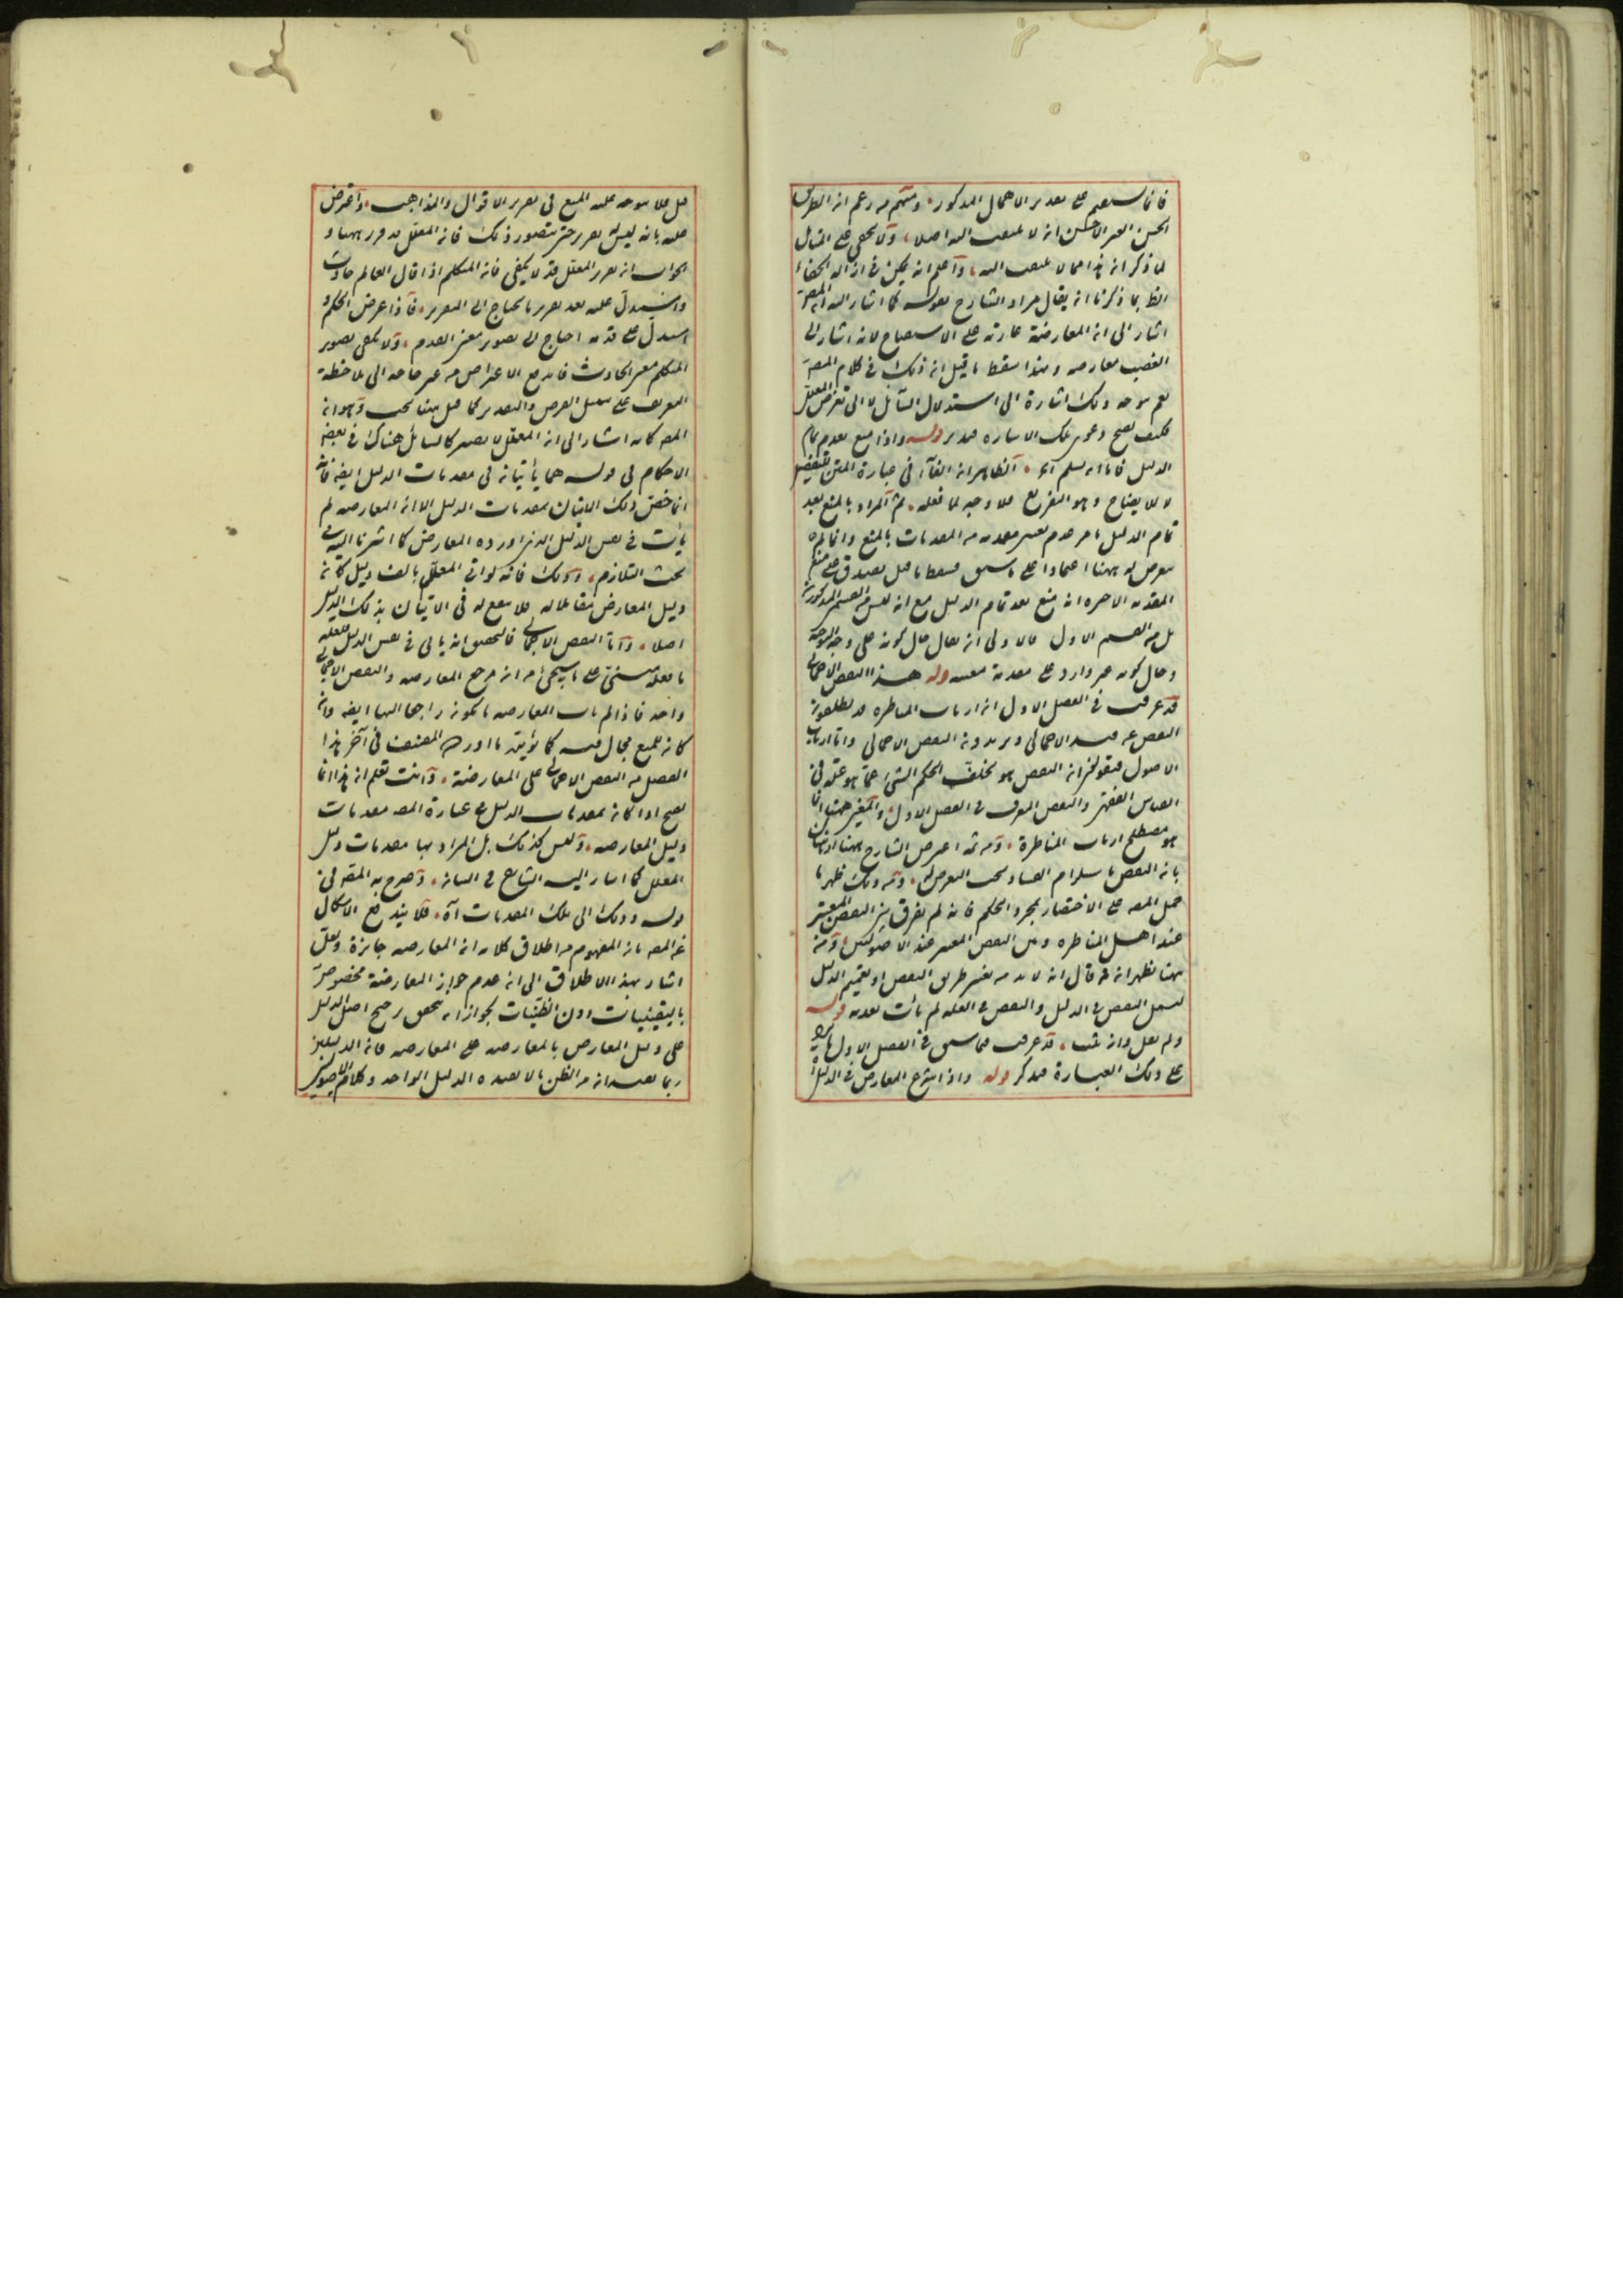 فانما يستقيم على تقدير الاهمال المذكور ومنهم من زعم ان الطريق
الحسن الغير الاحسن انه لا يلتفت اليه اصلا ولا يخفى على المتأمل
لما ذكر ان هذا مما لا يلتفت اليه واعلم انه يمكن في ازالة الخفاء
بما ذكرنا انه يقال مراد الشارح بقوله كما اشار اليه المصـ
اشار الى ان المعارضة عبارته على لانه اشار الى
الغصب معارضه وبهذا سقط ما قيل ان ذلك في كلام المصـ
نعم يوجد ذلك اشارة الى استدلال السائل لا الى تعرض المعلل
فكيف يصح دعوى تلك الاشارة فتدبر قوله واذا منع بعدم تمام
الدليل فاما ان يسلم آه الظاهر ان الفاء في عبارة المتن للتفصيل
لا للايضاح وهو التفريع فلا وجه لما فعله ثم المراد بالمنع بعد
تمام الدليل ما مر عدم تعيين مقدمة من المقدمات بالمنع وانما لم
يتعرض له ههنا اعتمادا على ما سبق فسقط ما قيل يصدق على منع
المقدمة الاخيرة انه منع بعد تمام الدليل مع انه ليس من القسم المذكور
بل من القسم الاول فالاولى ان يقال حال كونه على وجه التوجه
وحال كونه غير وارد على مقدمة معينة قوله هذا النقض الاجمالي
قد عرفت في الفصل الاول ان ارباب المناظرة قد يطلقون
النقض عن قيد الاجمالي ويريدون النقض الاجمالي واما ارباب
الاصول فيقولون ان النقض هو تخلف الحكم الشيء عما هو علة في
القياس الفقهي والنقض المعرف في الفصل الاول والمعتبر ههنا انما
هو مصطلح ارباب المناظرة ومن ثمه اعترض الشارح ههنا
بانه النقض باستلزام الفساد يجب التعرض له ومن ذلك ظهر ما
حمل المصـ على الاختصار بمجرد الحكم فانه لم يفرق بين النقض المعتبر
عند اهل المناظرة وبين النقض المعتبر عند الاصوليين ومن
ههنا يظهر ان من قال انه لا بد من تغيير طريق النقض او تعميم الدليل
ليشمل النقض في الدليل والنقض في العلة لم يأت بعده قوله
ولم يقل وانه قد عرفت مما سبق في الفصل الاول
على ذلك العبارة فتذكر قوله واذا شرع المعارض في الدليل
قيل فلا يتوجه عليه المنع في تقرير الاقوال والمذاهب واعترض
عليه بانه ليس تقرير حتى يتصور ذلك فانه المعلل قد قرر ههنا و
الجواب ان تقرير المعلل قد لا يكفي فانه المتكلم اذا قال العالم حادث
واستدل عليه بعد تقرير ما يحتاج الى التقرير فاذا عرض الحكم و
استدل على قدمه احتاج الى تصوير معنى القدم ولا يكفي تصوير
المتكلم معنى الحادث فاندفع الاعتراض من غير حاجة الى ملاحظة
التعريف على سبيل الفرض والتقدير كما قيل ههنا بحث وهو ان
المصـ كانه اشار الى ان المعلل لا يصير كالسائل هناك في بعض
الاحكام في قوله هما يأتيانه في مقدمات الدليل ايضا فانه
انما خص ذلك الاتيان بمقدمات الدليل الا ان المعارضه لم
يأت في نفس الدليل الذي اورده المعارض كما اشرنا اليه في
بحث التلازم وذلك فانه لو اتى المعلل بالف دليل كان
دليل المعارض مقابلا له فلا ينفع له في الاتيان بذلك الدليل
اصلا واما النقض الاجمالي فالتحقيق انه يأتي في نفس الدليل فلعله
ما نقله مبني على ما سيجيء من ان مرجع المعارضه والنقض الاجمالي
واحد فاذا لم يأت المعارضه ما يكون راجعا اليها ايضا وان
كان للمنع مجال فيه كما يؤيده ما اورده المصنف في آخر هذا
الفصل من النقض الاجمالي على المعارضة وانت تعلم ان هذا انما
يصح اذا كان بمقدمات الدليل في عبارة المصـ مقدمات
دليل المعارضه وليس كذلك بل المراد بها مقدمات دليل
المعلل كما اشار اليه الشارح في البيان وصرح به المصـ في
قوله وذلك الى تلك المقدمات آه فلا يندفع الاشكال
عن المصـ بان المفهوم من اطلاق كلامه ان المعارضه جائزة ولعل
اشار بهذا الاطلاق الى ان عدم جواز المعارضة مخصوص
باليقينيات دون الظنيات لجواز ان يتحقق رجح اصل الدليل
على دليل المعارض بالمعارضه على المعارضه فانه الدليلين
ربما يفيدانه من الظن ما لا يفيده الدليل الواحد وكلام الاصوليين